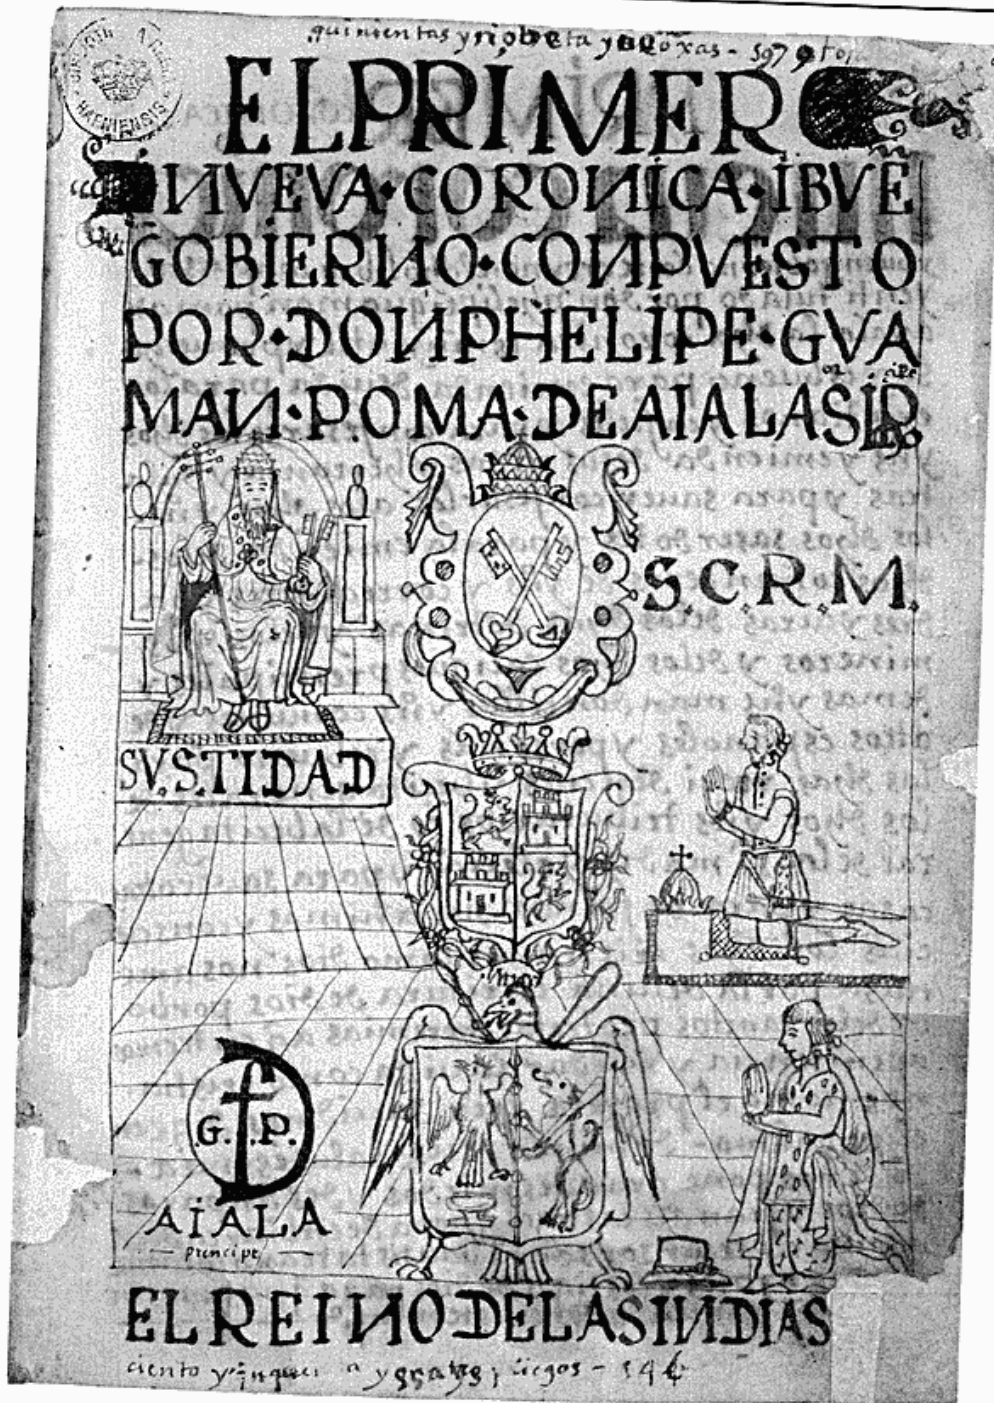 quinientas y nobenta y ojas - 597
EL PRIMER
NVEVA·CORONICA·IBVĒ
GOBIERNO·CONPVESTO
POR·DON PHELIPE·GVA
MAN·POMA·DEAIALA S
S.C.R.M.
SV.S.TIDAD
G. P.
AIALA
principe
EL REINO DELAS INDIAS
ciento y
HAFNIENSIS